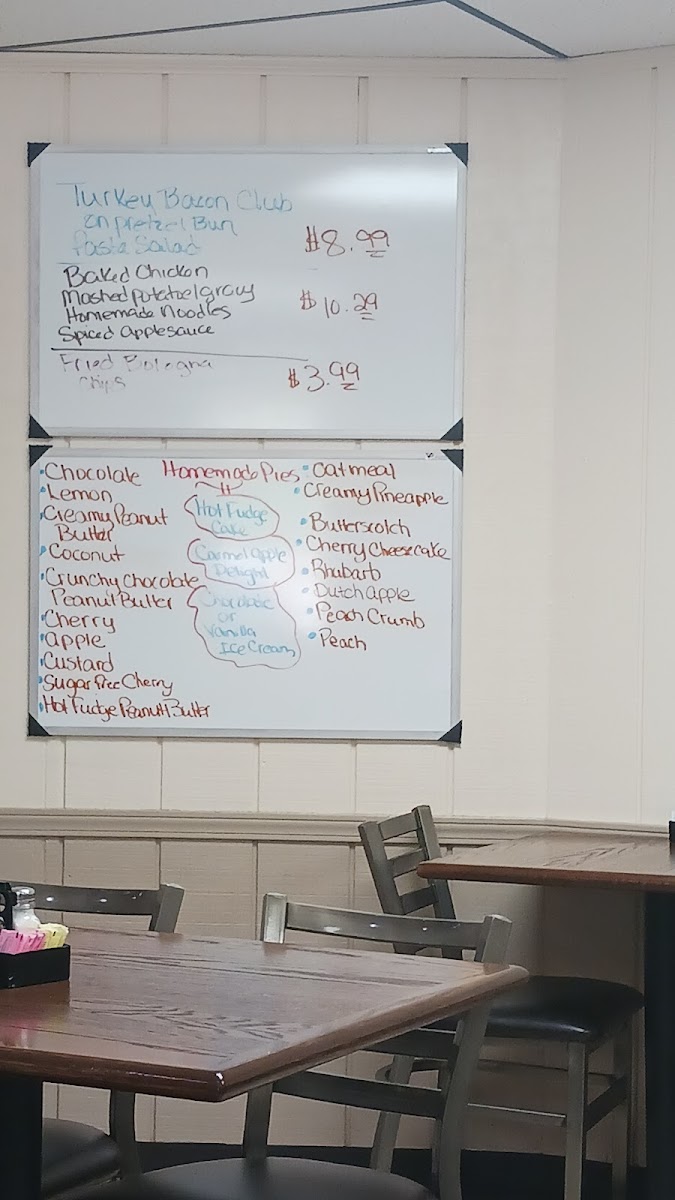 Turkey Bacon Club
on pretzel Bun
Pasta Salad
$8.99
Baked Chicken
Mashed potatoe/gravy
Homemade Noodles
Spiced applesauce
$10.29
Fried Bologna
Chips
$3.99
Homemade Pies
•Chocolate
•Lemon
•Creamy Peanut
Butter
•Coconut
•Crunchy Chocolate
Peanut Butter
•Cherry
•apple
•Custard
•Sugar Free Cherry
•Hot Fudge Peanut Butter
Hot Fudge
Cake
Carmel apple
Delight
Chocolate
or
Vanilla
Ice Cream
•Oatmeal
•Creamy Pineapple
•Butterscotch
•Cherry Cheesecake
•Rhubarb
•Dutch apple
•Peach Crumb
•Peach